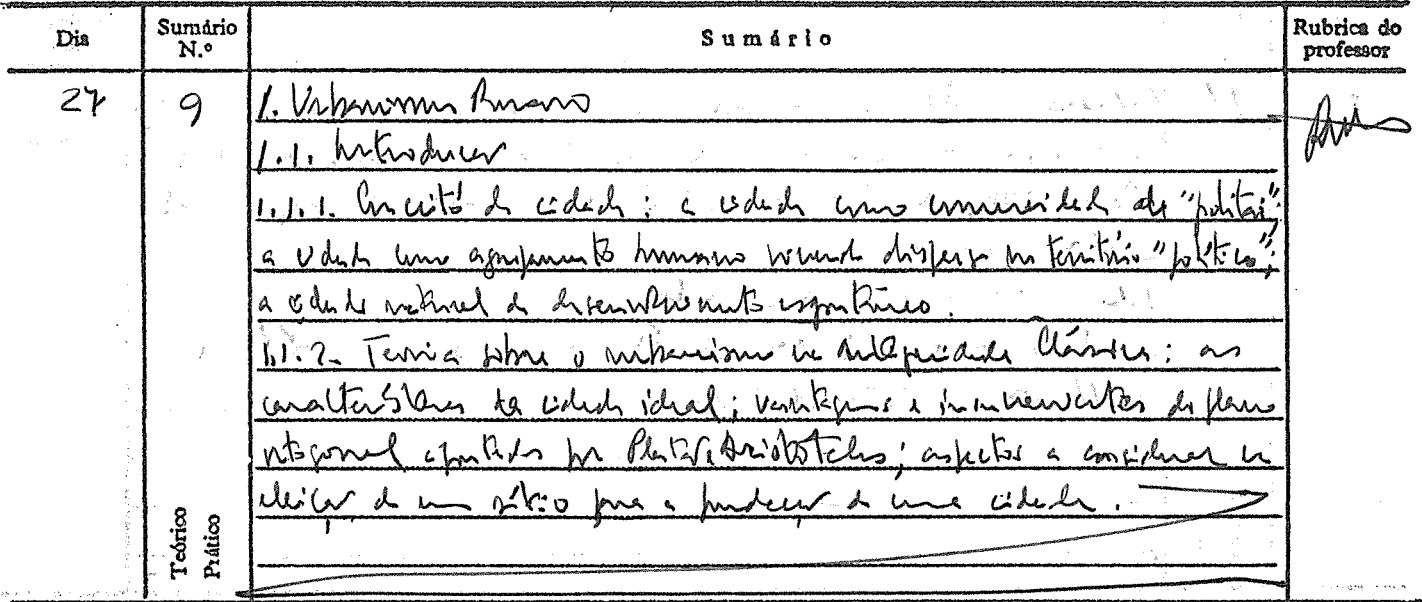 Dia
Sumário N.º
Sumário
Rubrica do professor
27
9
1. Urbanismo Romano
1.1. Introdução
1.1.1. Conceito de cidade: a cidade como comunidade de "politai";
a cidade como agrupamento humano vivendo disperso no território "político";
a cidade natural de desenvolvimento espontâneo.
1.1.2. Teoria sobre o urbanismo na Antiguidade Clássica: as
características da cidade ideal; vantagens e inconvenientes do plano
ortogonal apontados por Platão e Aristóteles; aspectos a considerar na
eleição de um sítio para a fundação de uma cidade.
Teórico
Prático